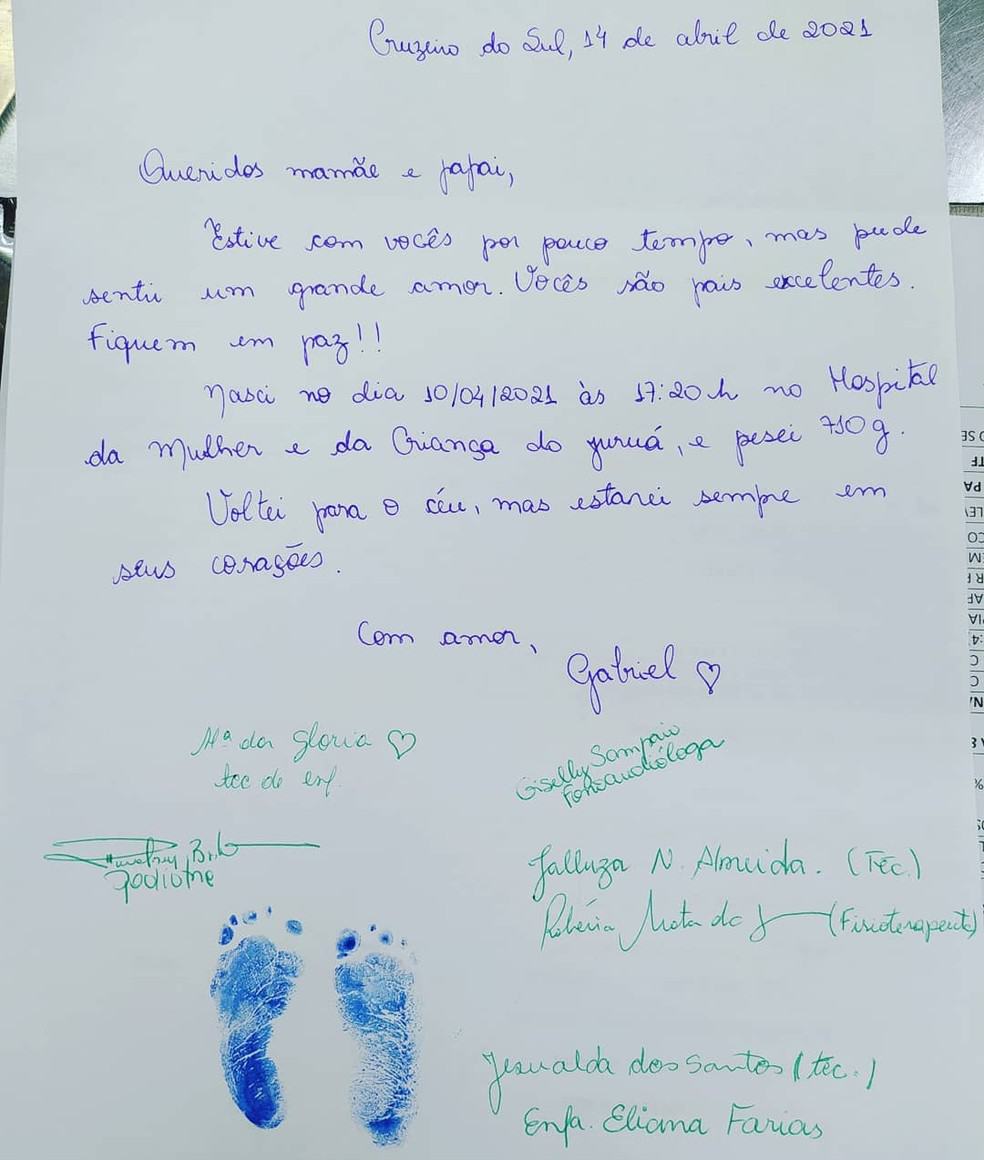 Cruzeiro do Sul, 14 de abril de 2021
Queridos mamãe e papai,
Estive com vocês por pouco tempo, mas pude
sentir um grande amor. Vocês são pais excelentes.
Fiquem em paz!!
Nasci no dia 10/04/2021 às 17:20h no Hospital
da Mulher e da Criança do Juruá, e pesei 710g.
Voltei para o céu, mas estarei sempre em
seus corações.
Com amor,
Gabriel ♡
Mª da Gloria ♡
tec de enf.
Giselly Sampaio
Fonoaudióloga
Jalluza N. Almeida. (Téc.)
Mota da (Fisioterapeuta)
Jesualda dos Santos (téc.)
Enfa. Eliana Farias